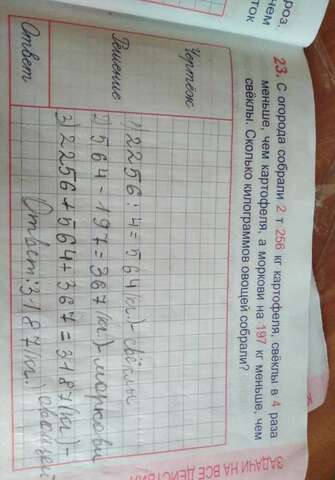 роз,
чем
ток
23. С огорода собрали 2 т 256 кг картофеля, свёклы в 4 раза
меньше, чем картофеля, а моркови на 197 кг меньше, чем
свёклы. Сколько килограммов овощей собрали?
Чертёж
Решение
1) 2256 : 4 = 564 (кг) - свёклы
2) 564 - 197 = 367 (кг) - моркови
3) 2256 + 564 + 367 = 3187 (кг) -
Ответ
Ответ: 3187 (кг) овощей
ЗАДАЧИ НА ВСЕ ДЕЙСТВИ